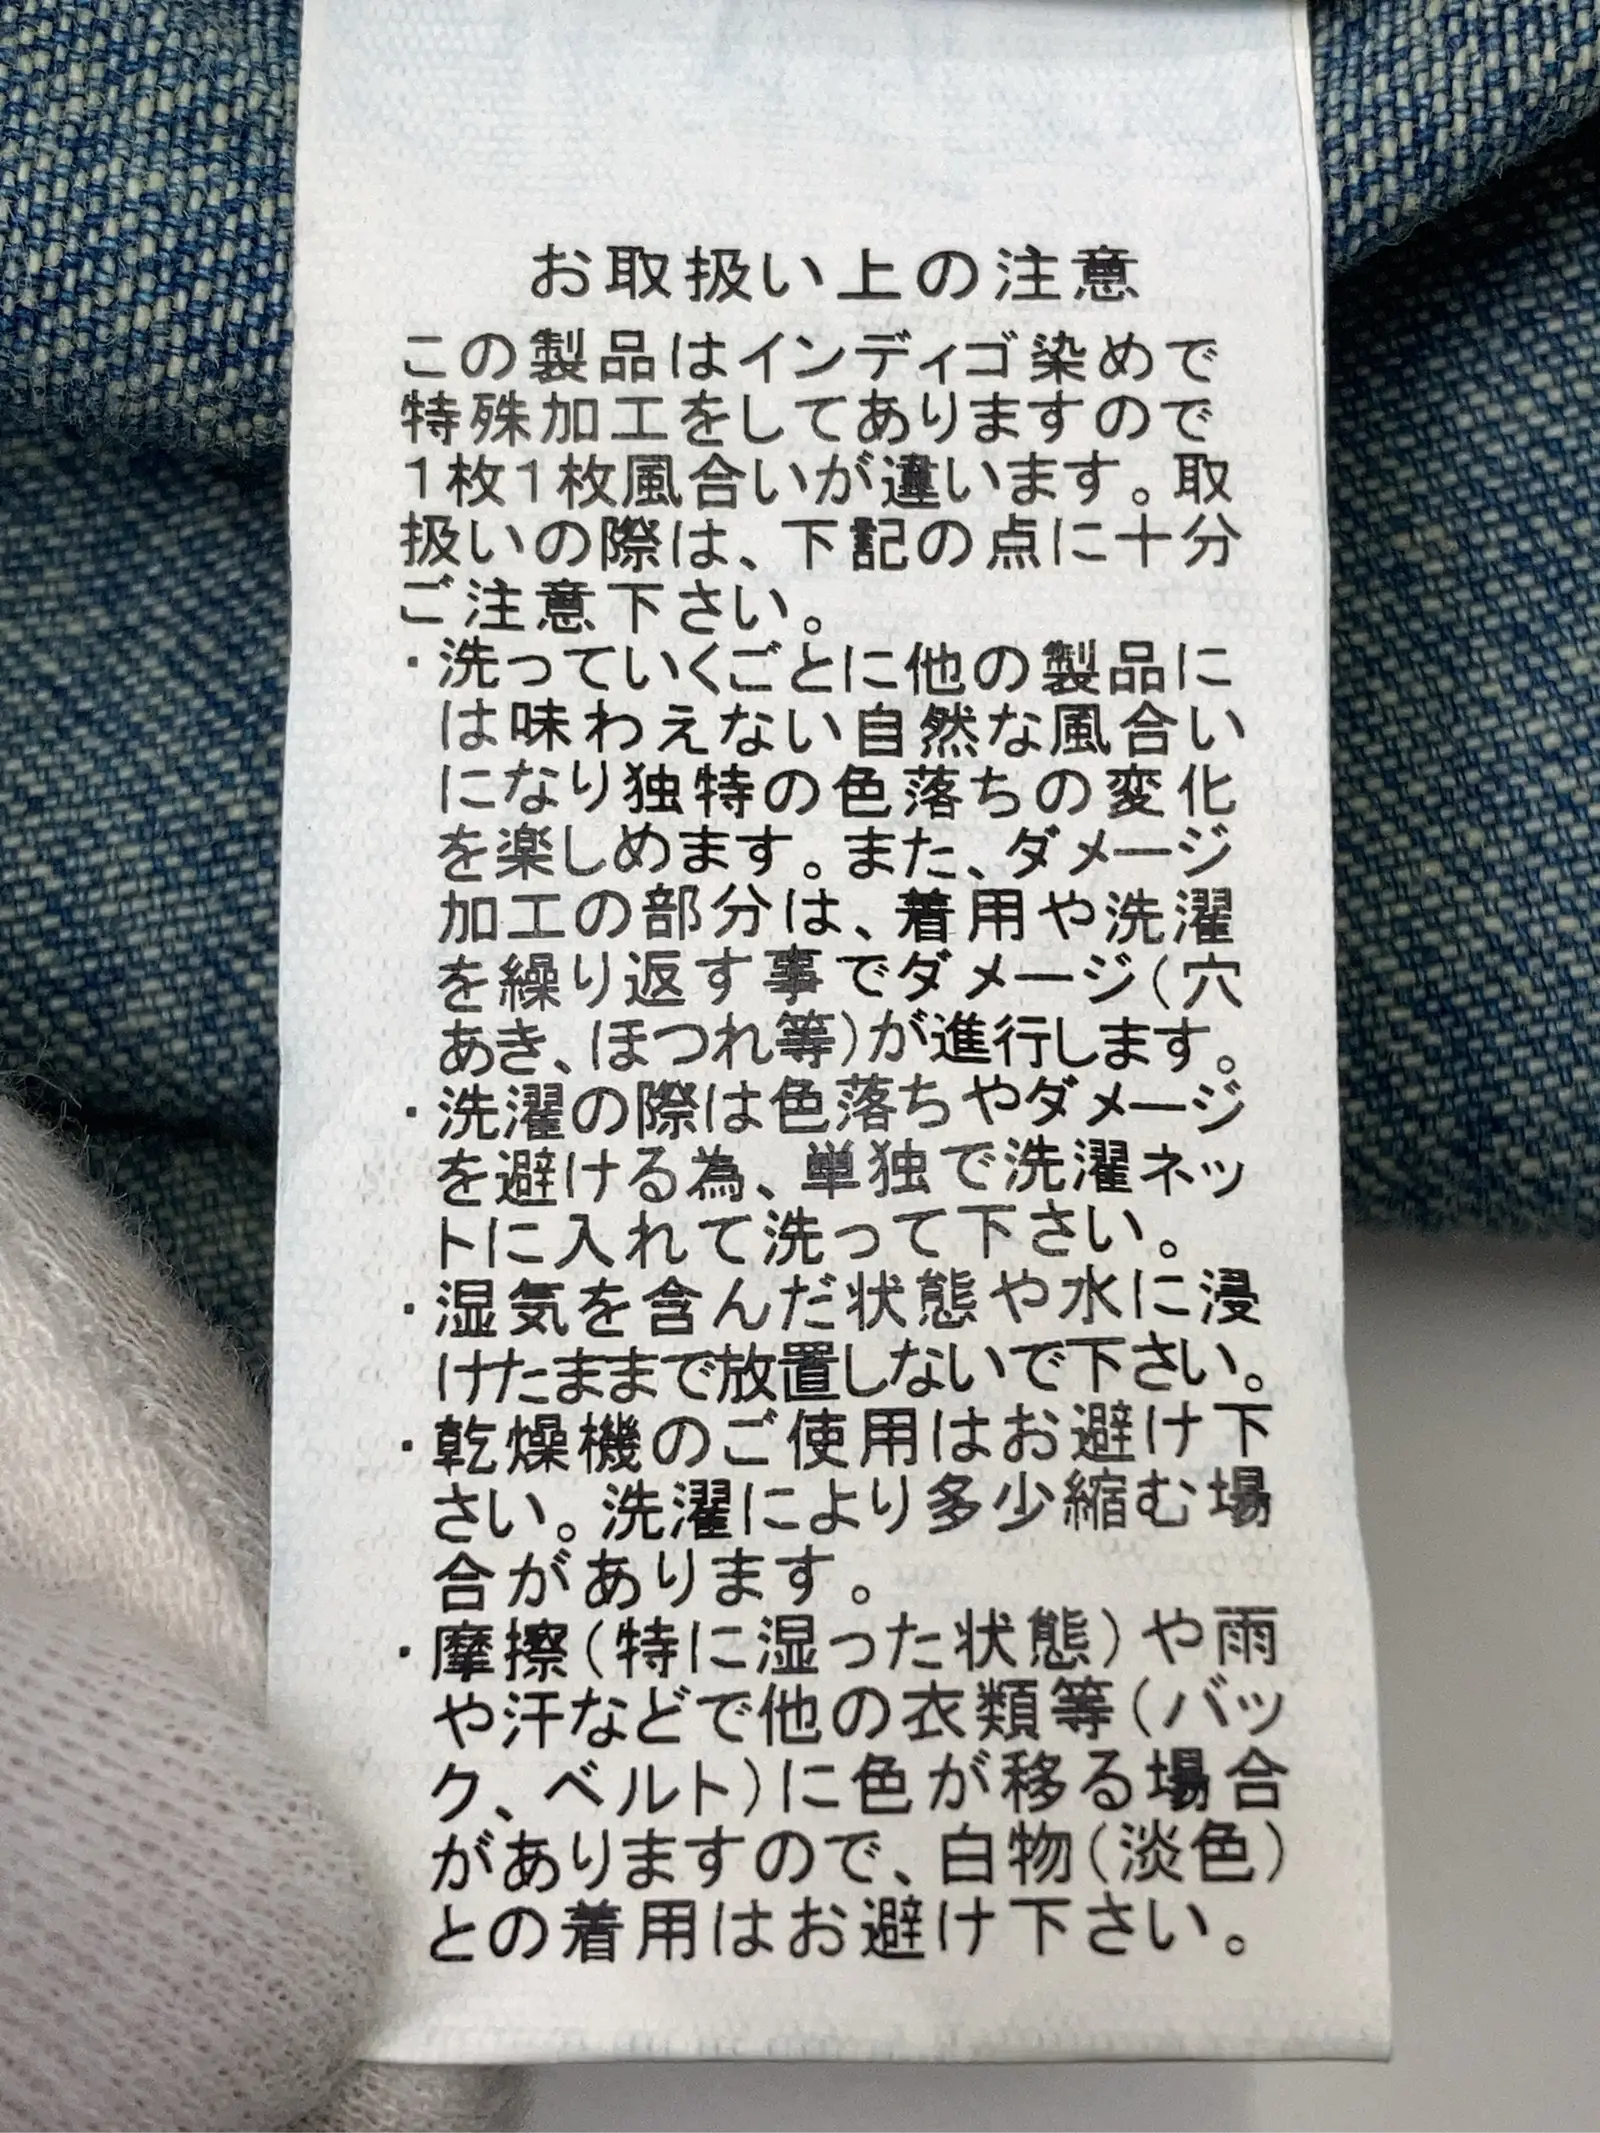 お取扱い上の注意
この製品はインディゴ染めで
特殊加工をしてありますので
1枚1枚風合いが違います。取
扱いの際は、下記の点に十分
ご注意下さい。
・洗っていくごとに他の製品に
は味わえない自然な風合い
になり独特の色落ちの変化
を楽しめます。また、ダメージ
加工の部分は、着用や洗濯
を繰り返す事でダメージ(穴
あき、ほつれ等)が進行します。
・洗濯の際は色落ちやダメージ
を避ける為、単独で洗濯ネッ
トに入れて洗って下さい。
・湿気を含んだ状態や水に浸
けたままで放置しないで下さい。
・乾燥機のご使用はお避け下
さい。洗濯により多少縮む場
合があります。
・摩擦(特に湿った状態)や雨
や汗などで他の衣類等(バッ
ク、ベルト)に色が移る場合
がありますので、白物(淡色)
との着用はお避け下さい。